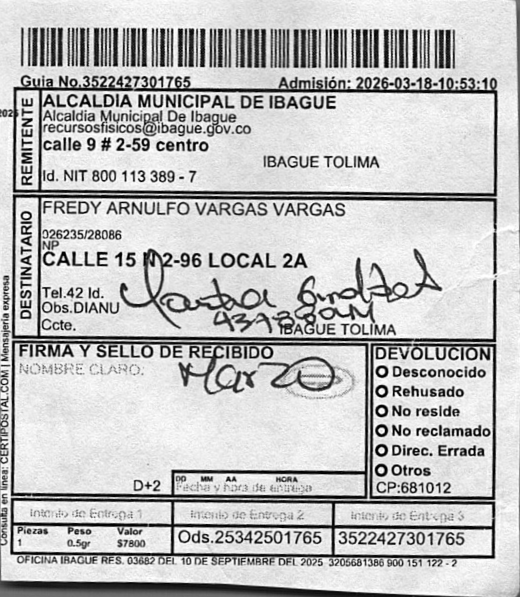 Guia No.3522427301765 Admisión: 2026-03-18-10:53:10
REMITENTE
ALCALDIA MUNICIPAL DE IBAGUE
Alcaldia Municipal De Ibague
recursosfisicos@ibague.gov.co
calle 9 # 2-59 centro
IBAGUE TOLIMA
Id. NIT 800 113 389 - 7
DESTINATARIO
FREDY ARNULFO VARGAS VARGAS
026235/28086
NP
CALLE 15 N 2-96 LOCAL 2A
Tel.42 Id.
Obs.DIANU
Ccte.
IBAGUE TOLIMA
FIRMA Y SELLO DE RECIBIDO
NOMBRE CLARO:
Marzo
D+2
DD MM AA HORA
Fecha y hora de entrega
DEVOLUCION
Desconocido
Rehusado
No reside
No reclamado
Direc. Errada
Otros
CP:681012
Intento de Entrega 1 Intento de Entrega 2 Intento de Entrega 3
Piezas Peso Valor
1 0.5gr $7800
Ods.25342501765 3522427301765
OFICINA IBAGUE RES. 03682 DEL 10 DE SEPTIEMBRE DEL 2025 3205681386 900 151 122 - 2
Consulta en linea: CERTIPOSTAL.COM | Mensajería expresa